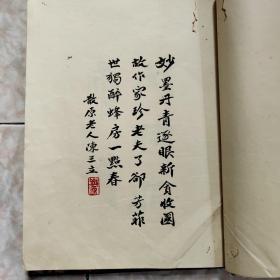 妙墨丹青逐眼新貪收圖
故作家珍老夫了卻芳菲
世獨醉蜂房一點春
散原老人陳三立